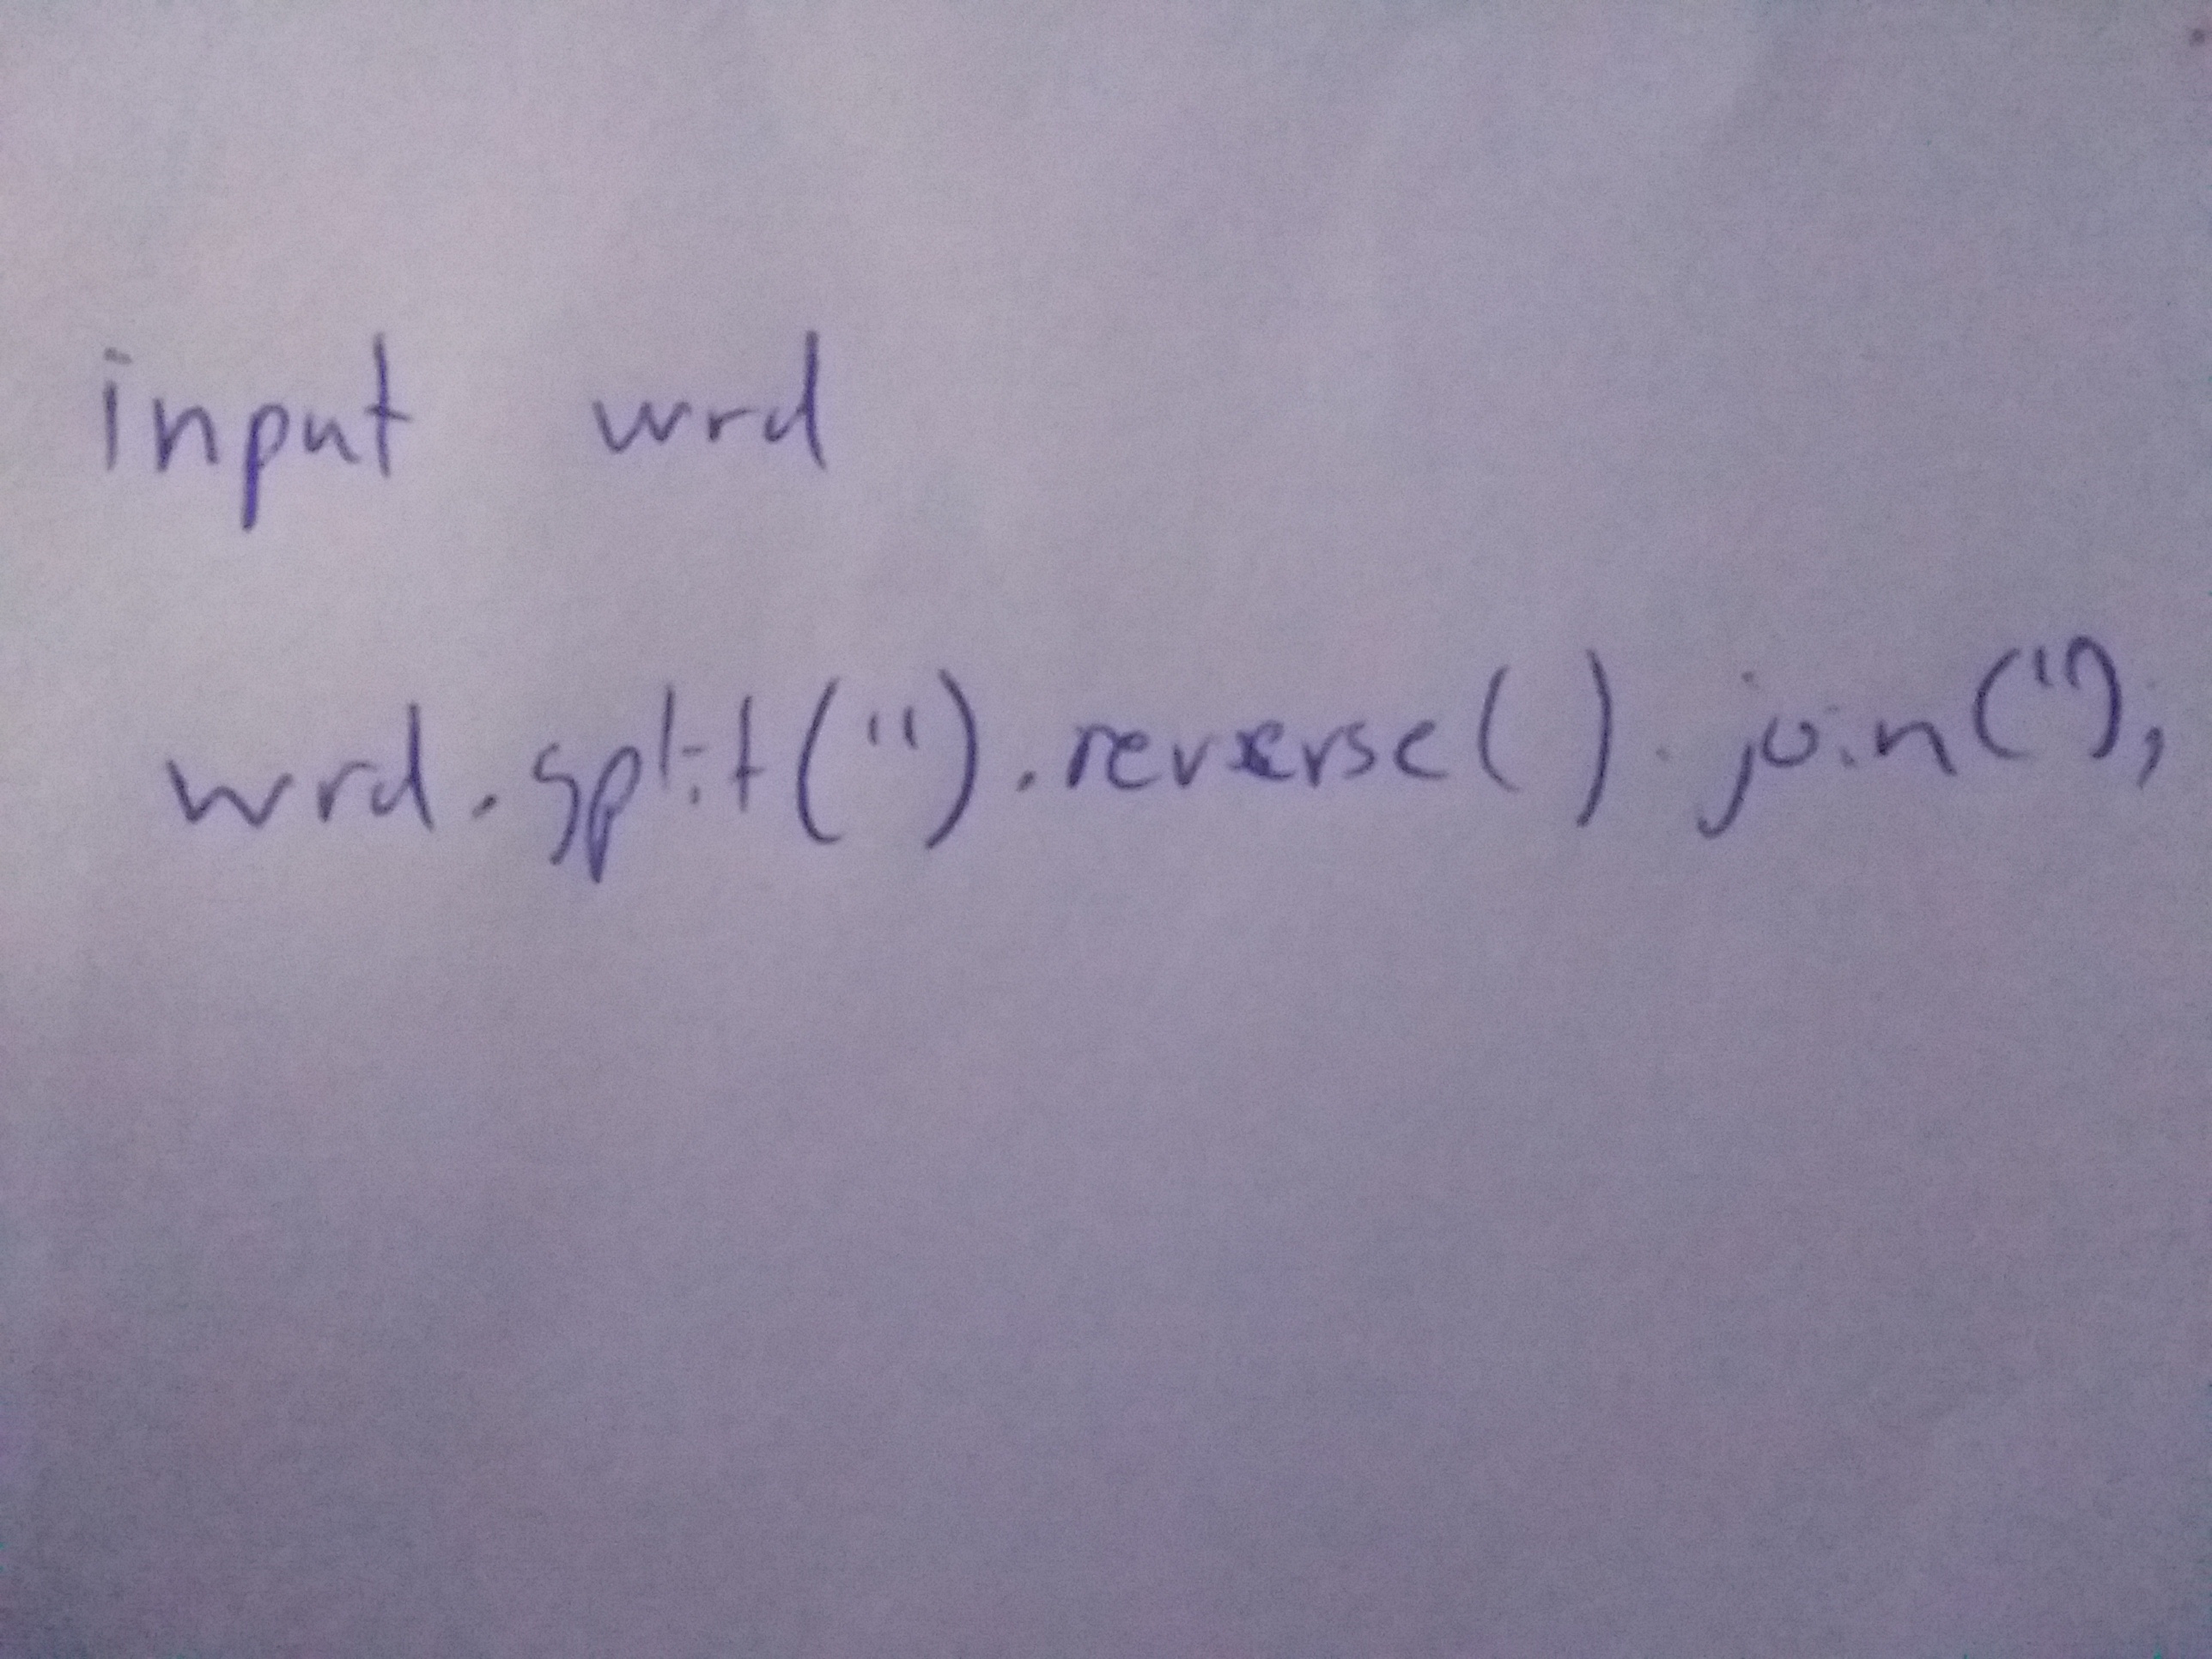 input wrd
wrd.split('').reverse().join('');